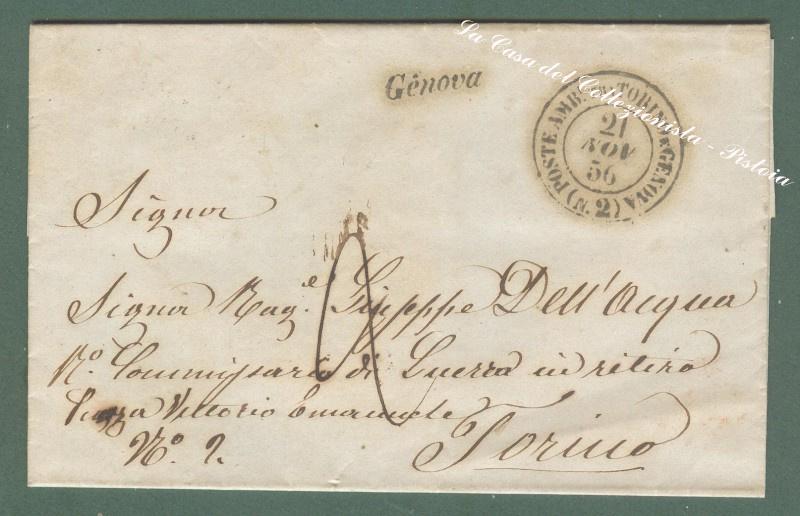 La Casa del Collezionista - Pistoia
Gênova
POSTE AMB. TORINO e GENOVA
(N. 2)
21
NOV
56
Signor
Signor Rag.e Giuseppe Dell'Acqua
R.o Commissario di Guerra in ritiro
Piazza Vittorio Emanuele
No. 2. Torino